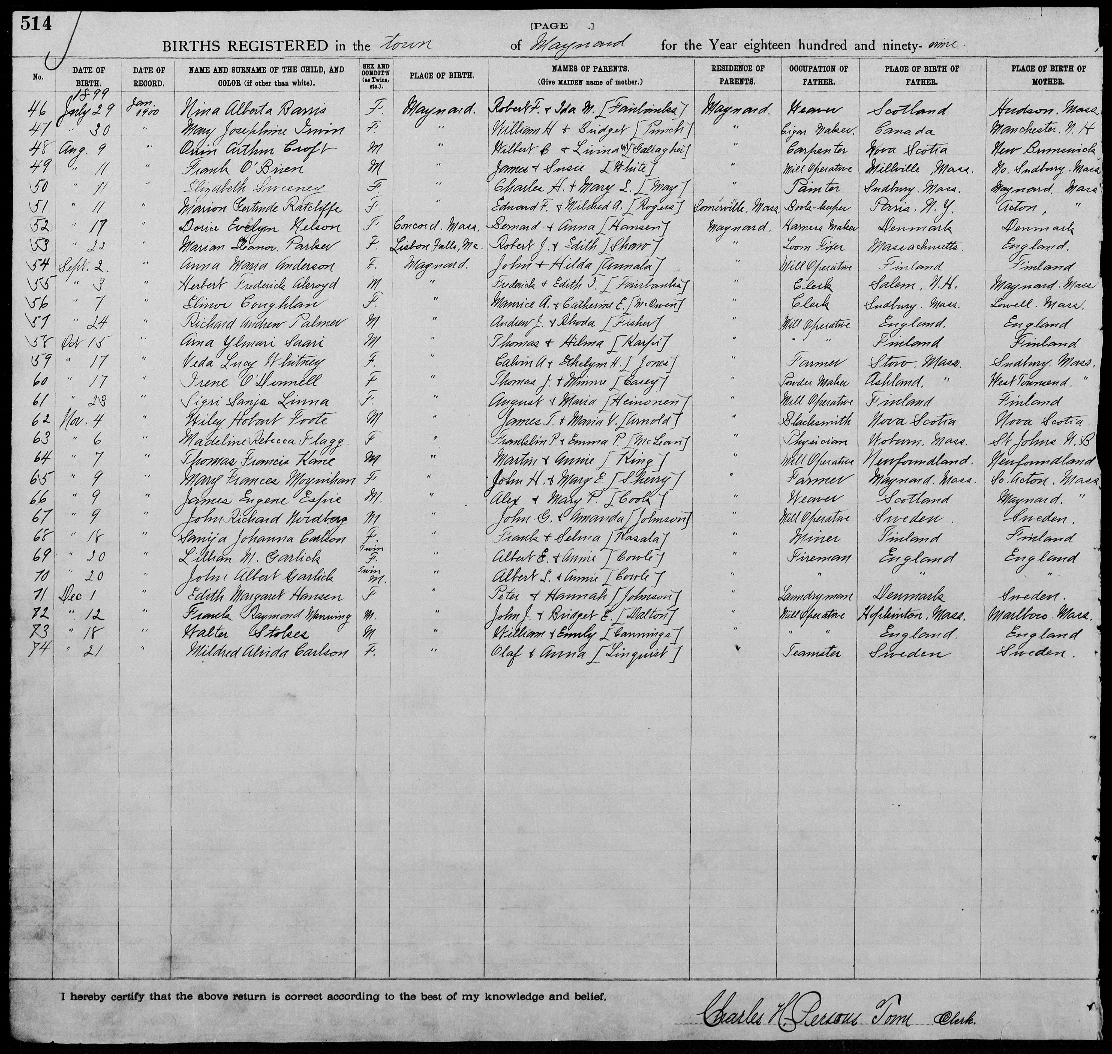 514
[PAGE .]
BIRTHS REGISTERED in the town of Maynard for the Year eighteen hundred and ninety-nine.
No. DATE OF BIRTH. DATE OF RECORD. NAME AND SURNAME OF THE CHILD, AND COLOR (if other than white). SEX AND CONDIT'N (as Twins, etc.). PLACE OF BIRTH. NAMES OF PARENTS. (Give MAIDEN name of mother.) RESIDENCE OF PARENTS. OCCUPATION OF FATHER. PLACE OF BIRTH OF FATHER. PLACE OF BIRTH OF MOTHER.
1899
46 July 29 Jan 1900 Nina Alberta F. Maynard Robert F. & Ida M. [Fairbanks] Maynard Weaver Scotland Hudson, Mass.
47 " 30 " Mary Josephine Irwin F. " William H & Bridget [Punch] " Cigar Maker Canada Manchester, N.H
48 Aug. 9 " Orrin Arthur Croft M " Wilbert C & [Gallagher] " Carpenter Nova Scotia New Brunswick
49 " 11 " Frank O'Brien M " James & Susie [White] " Mill Operative Millville, Mass. No. Sudbury, Mass
50 " 11 " Elizabeth Sweeney F " Charles H. & Mary L. [May] " Painter Sudbury, Mass. Maynard, Mass
51 " 11 " Marion Gertrude Ratcliffe F " Edward F. & Mildred A. [Rogers] Somerville, Mass Book-keeper Paris, N.Y. Acton, "
52 " 17 " Evelyn Nelson F. Concord, Mass. Bernard & Anna [Hansen] Maynard Harness Maker Denmark Denmark
53 " 22 " Marian Eleanor Parker F Lisbon Falls, Me. Robert J. & Edith [Shaw] " Loom Fixer Massachusetts England.
54 Sept. 2 " Anna Maria Anderson F. Maynard John & Hilda [Annala] " Mill Operative Finland Finland
55 " 3 " Herbert Frederick Akroyd M " Frederick & Edith J. [Fairbanks] " Clerk Salem, N.H. Maynard, Mass
56 " 7 " Elinor Coughlan F. " Maurice A. & Catherine E. [McOwen] " Clerk Sudbury, Mass. Lowell, Mass.
57 " 24 " Richard Andrew Palmer M " Andrew J. & Rhoda [Fisher] " Mill Operative England. England
58 Oct 15 " Arna Ylmari Saari M " Thomas & Hilma " " " Finland Finland
59 " 17 " Veda Lucy Whitney F. " Calvin A & Ethelyn H. [Jones] " Farmer Stow, Mass. Sudbury, Mass.
60 " 17 " Irene O'Donnell F " Thomas J. & Minnie [Casey] " Powder Maker Ashland, " West Townsend, "
61 " 23 " Sigri Sanja Linna F " August & Maria [Heinonen] " Mill Operative Finland Finland
62 Nov. 4 " Wiley Hobart Foote M " James T. & Maria V. [Arnold] " Blacksmith Nova Scotia Nova Scotia
63 " 6 " Madeline Rebecca Flagg F " Franklin P. & Emma P. [McLean] " Physician Woburn, Mass. St Johns N.B
64 " 7 " Thomas Francis Kane M " Martin & Annie [King] " Mill Operative Newfoundland. Newfoundland
65 " 9 " Mary Frances Moynihan F " John H & Mary E. [Sherry] " Farmer Maynard, Mass. So. Acton, Mass
66 " 9 " James Eugene Espie M. " Alex & Mary P. [Cook] " Weaver Scotland Maynard, "
67 " 9 " John Richard Nordberg M. " John G. & Amanda [Johnson] " Mill Operative Sweden. Sweden.
68 " 18 " Sanija Johanna Carlson F. " Frank & Selma [Kasala] " Miner Finland Finland
69 " 20 " Lillian M. Garlick Twin F. " Albert E. & Annie [Cowle] " Fireman England England
70 " 20 " John Albert Garlick Twin M. " Albert E. & Annie [Cowle] " " " "
71 Dec 1 " Edith Margaret Hansen F " Peter & Hannah [Johnson] " Laundryman Denmark Sweden.
72 " 12 " Frank Raymond Manning M. " John J. & Bridget E. [Dalton] " Mill Operative Hopkinton, Mass. Marlboro, Mass.
73 " 18 " Walter Stokes M " William & Emily [Cannings] " " " England England
74 " 21 " Mildred Alvida Carlson F. " Olaf & Anna [Linquist] " Teamster Sweden Sweden.
I hereby certify that the above return is correct according to the best of my knowledge and belief.
Charles H. Persons Town Clerk.